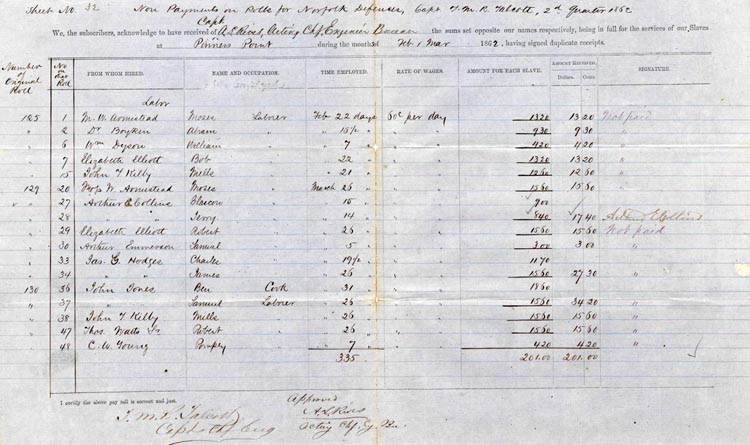 Sheet No. 32 Non Payments on Rolls for Norfolk Defenses, Capt T. M. R. Talcott, 2nd Quarter 1862
Capt
We, the subscribers, acknowledge to have received of A L Rives, Acting Chf. Engineer Bureau the sums set opposite our names respectively, being in full for the services of our Slaves
at Pinners Point during the months of Feb & Mar 1862, having signed duplicate receipts.
Number of Original Roll No. on this Roll FROM WHOM HIRED. NAME AND OCCUPATION. TIME EMPLOYED. RATE OF WAGES. AMOUNT FOR EACH SLAVE. AMOUNT RECEIVED. Dollars. Cents. SIGNATURE.
Labor
125 1 M. W. Armistead Moses Laborer Feb 22 days 60c per day 1320 13 20 Not paid
" 2 Dr Boykin Abram " 15½ " " " 930 9 30 "
" 6 Wm Dyson William " 7 " " " 420 4 20 "
" 7 Elizabeth Elliott Bob " 22 " " " 1320 13 20 "
" 15 John T Kelly Mills " 21 " " " 1260 12 60 "
129 20 W. Armistead Moses March 26 " " " 1560 15 60 "
" 27 Arthur E Collins Glascow " 15 " " " 900
" 28 " " Jerry " 14 " " " 840 17 40
" 29 Elizabeth Elliott Robert " 26 " " " 1560 15 60 Not paid
" 30 Arthur Emmerson Samuel " 5 " " " 300 3 00 "
" 33 Jas. G. Hodges Charles " 19½ " " " 1170
" 34 " " James " 26 " " " 1560 27 30 "
130 36 John Jones Ben Cook " 31 " " " 1860
" 37 " " Samuel Laborer " 26 " " " 1560 34 20 "
" 38 John T Kelly Mills " 26 " " " 1560 15 60 "
" 47 Thos. Watts Robert " 26 " " " 1560 15 60 "
" 48 C. W. Young Pompey " 7 " " " 420 4 20 "
335 201.00 201.00
I certify the above pay roll is correct and just.
Approved
T. M. R. Talcott A L Rives
Capt & Eng Acting Chf. Eng. Bu.